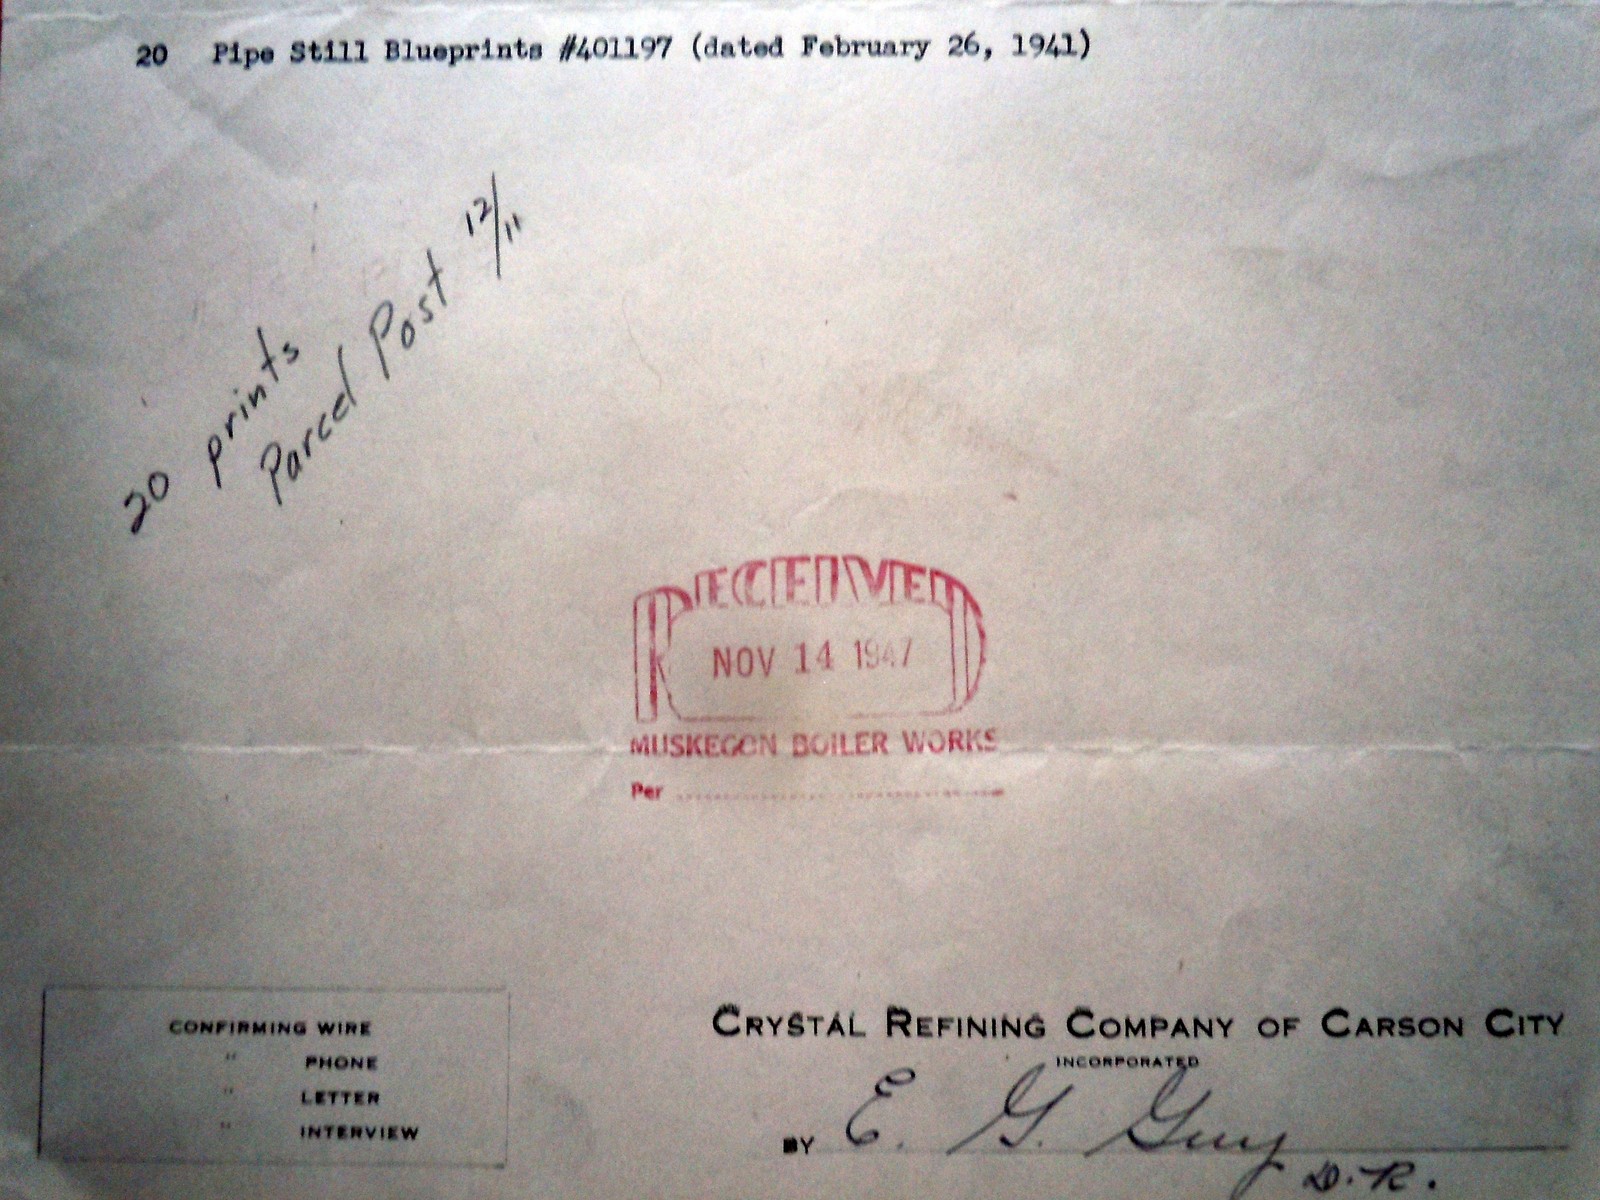 20 Pipe Still Blueprints #401197 (dated February 26, 1941)
20 prints
Parcel Post 12/11
RECEIVED
NOV 14 1947
MUSKEGON BOILER WORKS
Per
CONFIRMING WIRE
" PHONE
" LETTER
" INTERVIEW
CRYSTAL REFINING COMPANY OF CARSON CITY
INCORPORATED
BY E. G. Guy
D.R.